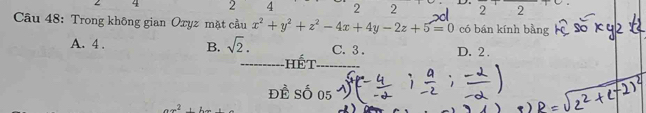 2 4 2 4 2 2 2 2
Câu 48: Trong không gian Oxyz mặt cầu x² + y² + z² − 4x + 4y − 2z + 5 = 0 có bán kính bằng hệ số x y z
A. 4 . B. √2 . C. 3 . D. 2 .
----------HẾT----------
ĐỀ SỐ 05 1) (-4/-2 ; 4/-2 ; -2/-2)
R = √2² + (-2)²